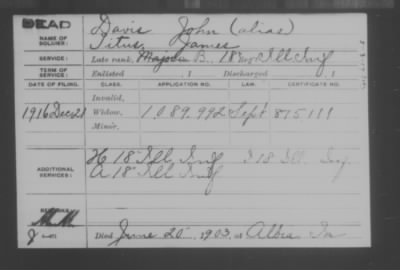 DEAD
Davis John (alias)
NAME OF SOLDIER:
Titus, James
SERVICE:
Late rank, B, 18 Ill Inf
TERM OF SERVICE:
Enlisted , 1 Discharged , 1
DATE OF FILING. CLASS. APPLICATION NO. LAW. CERTIFICATE NO.
Invalid,
1916 Dec 21 Widow, 1,089,992 Sept 875,111
Minor,
ADDITIONAL SERVICES:
H 18 Ill Inf I 18 Ill. Inf
A 18 Ill Inf
REMARKS:
Died June 20, 1903, at Albia Ia